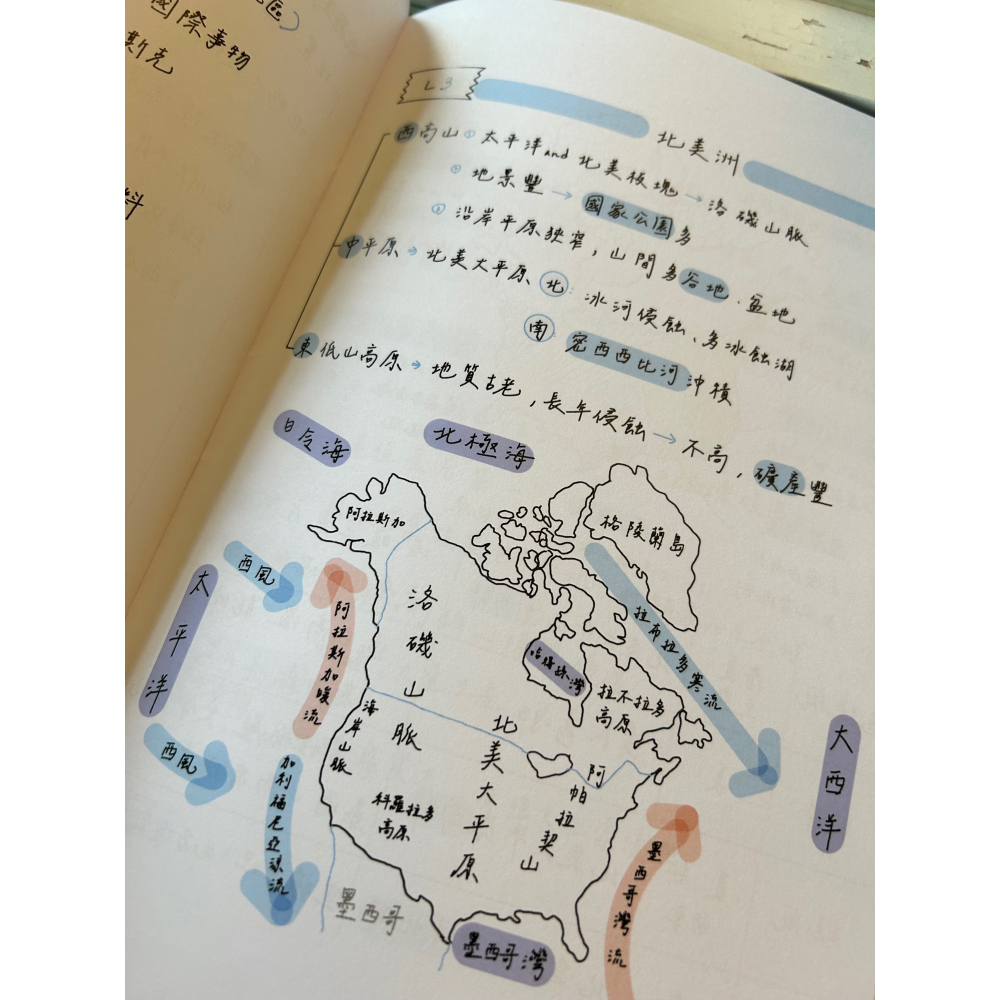 區）
國際事物
斯克
料
L3
北美洲
西高山 ① 太平洋and北美板塊→洛磯山脈
② 地景豐→國家公園多
③ 沿岸平原狹窄，山間多谷地、盆地
中平原→北美大平原 北：冰河侵蝕、多冰蝕湖
南：密西西比河沖積
東低山高原→地質古老，長年侵蝕→不高，礦產豐
白令海
北極海
阿拉斯加
格陵蘭島
西風
太平洋
阿拉斯加暖流
洛磯山脈
拉布拉多寒流
哈德孫灣
拉不拉多
高原
海岸山脈
西風
北美大平原
阿帕拉契山
大西洋
加利福尼亞涼流
科羅拉多
高原
墨西哥
墨西哥灣
墨西哥灣流